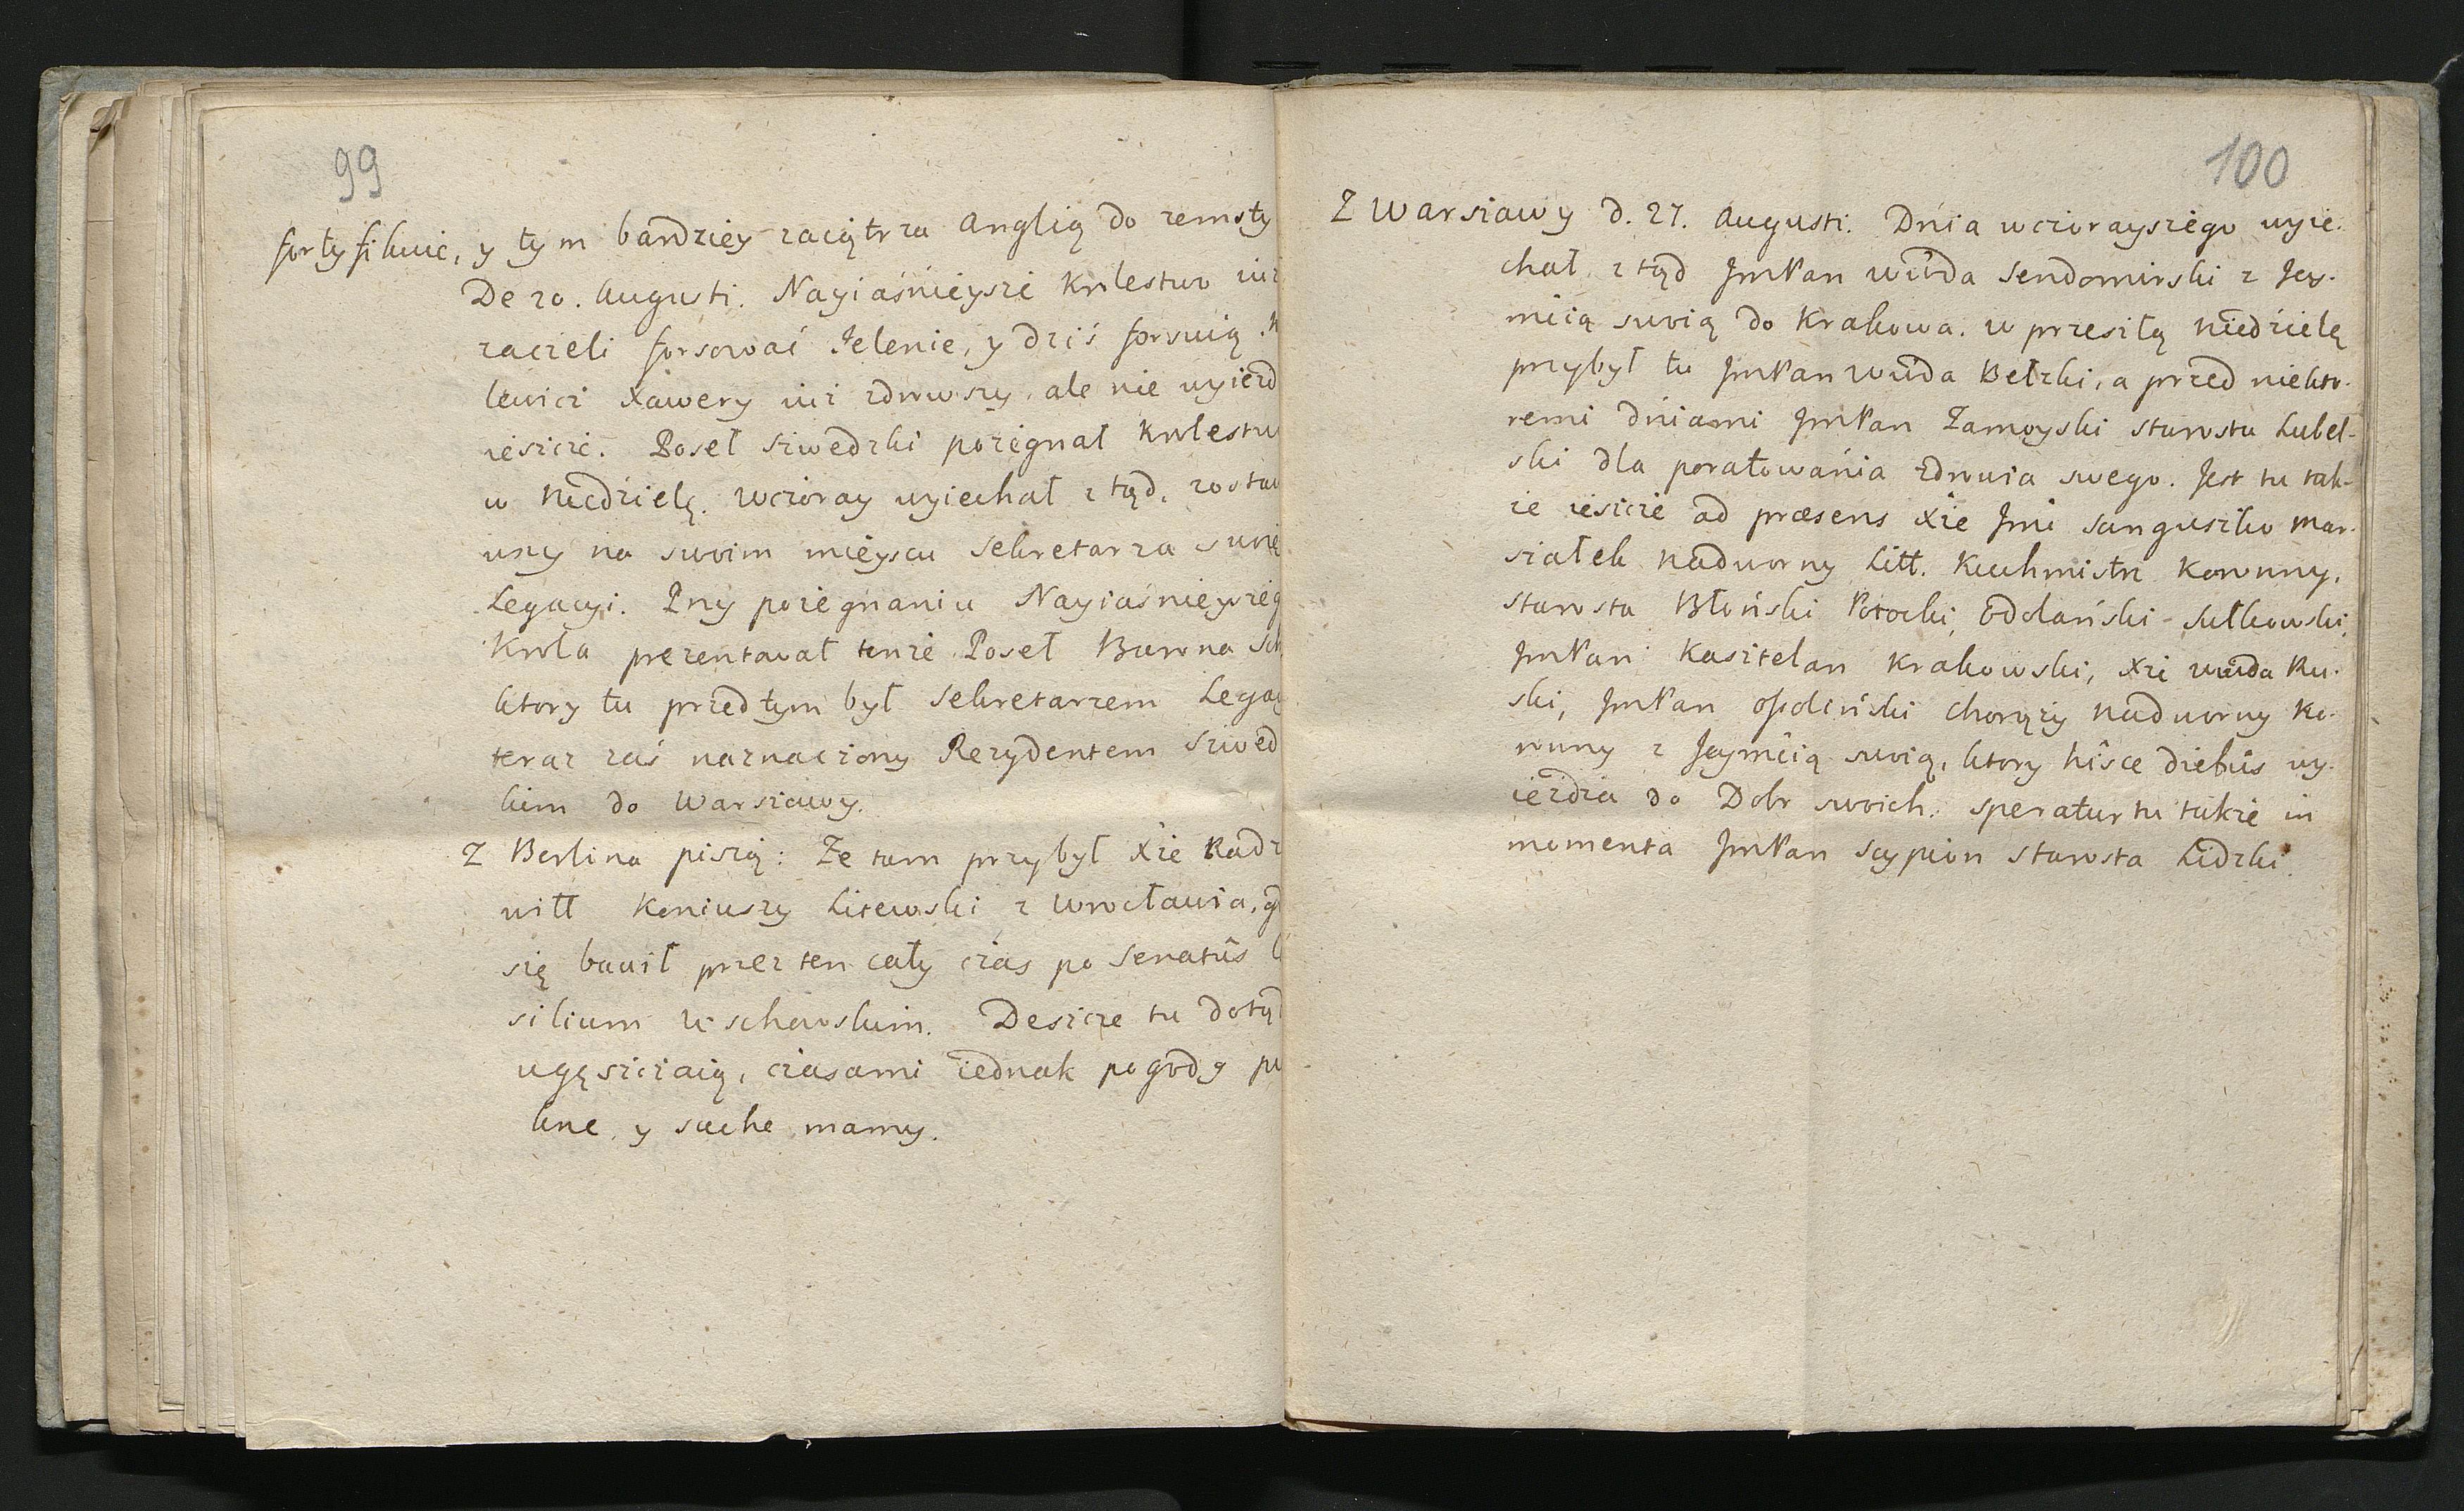 99
fortyfikuie, y tym bardziey zaiątrza Anglią do zemsty
De 20. Augusti. Nayiaśnieysze Krolestwo iuż
zaczeli forsować Jelenie, y dziś forsuią. K
lewicz Xawery iuż zdrowszy, ale nie wyieżd
ieszcze. Poseł Szwedzki pożegnał Krolestw
w Niedzielę. Wczoray wyiechał z tąd, zostaw
uszy na swoim mieyscu Sekretarza swoie
Legacyi. Przy pożegnaniu Nayiaśnieyszeg
Krola prezentował tenże Poseł Barona Sch
ktory tu przedtym był Sekretarzem Legac
teraz zaś naznaczony Rezydentem Szwed
kim do Warszawy.
Z Berlina piszą: Że tam przybył Xże Radz
wiłł Koniuszy Litewski z Wrocławia, g
się bawił przez ten cały czas po Senatûs C
silium Wschowskim. Deszcze tu dotąd
ugęszczaią, czasami iednak pogody pi
kne y suche mamy.
100
Z Warszawy d. 27. Augusti. Dnia wczorayszego wyie-
chał z tąd JmPan Wwda Sendomirski z Jey-
mcią swoią do Krakowa. W przeszłą Niedzielę
przybył tu JmPan Wwda Bełzki, a przed niekto-
remi dniami JmPan Zamoyski Starosta Lubel-
ski dla poratowania zdrowia swego. Jest tu tak-
że ieszcze ad præsens Xże Jmć Sanguszko Mar-
szałek Nadworny Litt. Kuchmistrz Koronny,
Starosta Błoński Potocki, Odolański Sułkowski,
JmPan Kasztelan Krakowski, Xże Wwda Ru-
ski, JmPan Opoliński Chorąży Nadworny Ko-
ronny z Jeymcią swoią, ktory hisce diebûs wy-
ieżdża do Dobr swoich. Speratur tu także in
momenta JmPan Scypion Starosta Lidzki.